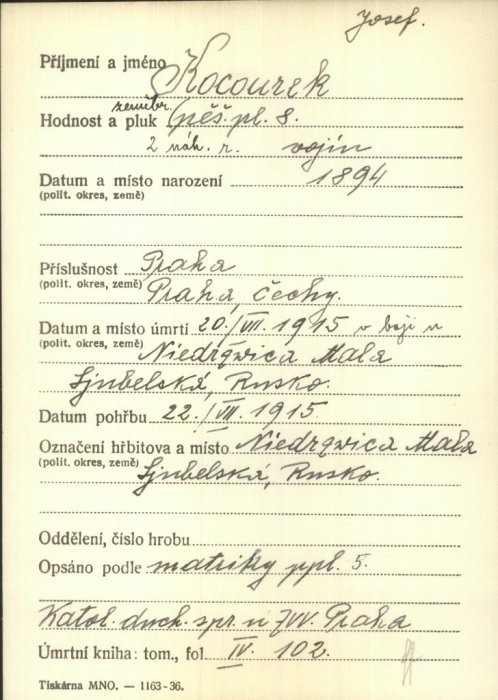 Josef.
Příjmení a jméno Kocourek
zeměbr.
Hodnost a pluk (pěš. pl. 8.
2 náh. r. vojín
Datum a místo narození 1894
(polit. okres, země)
Příslušnost Praha
(polit. okres, země) Praha, Čechy.
Datum a místo úmrtí 20./VII. 1915 v boji u
(polit. okres, země) Niedrzwica Mala
Ljubelská, Rusko.
Datum pohřbu 22./VII. 1915
Označení hřbitova a místo Niedrzwica Mala
(polit. okres, země) Ljubelská, Rusko.
Oddělení, číslo hrobu
Opsáno podle matriky ppl. 5.
Katol. duch. spr. u ZVV. Praha
Úmrtní kniha: tom., fol. IV. 102.
Tiskárna MNO. — 1163-36.